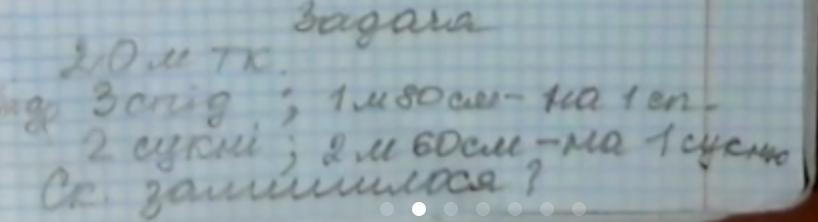 Задача
20 м тк.
3 спід ; 1 м 80 см - на 1 сп.
2 сукні ; 2 м 60 см - на 1 сукню
Ск. залишилося ?